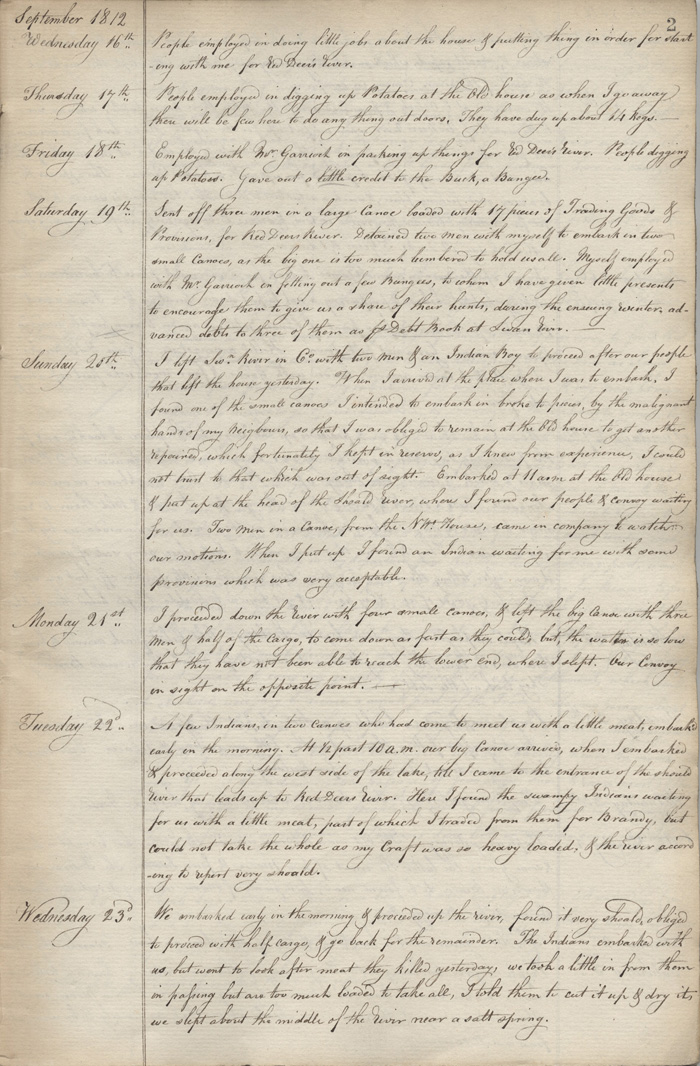 2
September 1812
Wednesday 16th People employed in doing little jobs about the house & putting thing in order for start
-ing with me for Rd Deers River.
Thursday 17th People employed in digging up Potatoes at the Old house as when I go away
there will be few here to do any thing out doors, They have dug up about 14 kegs.
Friday 18th Employed with Mr. Garrioch in packing up things for Rd Deers River. People digging
up Potatoes. Gave out a little credit to the Buck, a Bungee.
Saturday 19th Sent off three men in a large Canoe loaded with 17 pieces of Trading Goods &
Provisions, for Red Deers River. Detained two men with myself to embark in two
small Canoes, as the big one is too much lumbered to hold us all. Myself employed
with Mr. Garrioch in fitting out a few Bungees, to whom I have given little presents
to encourage them to give us a share of their hunts, during the ensuing winter, ad-
vanced debts to three of them as pr Debt Book at Swan River.
Sunday 20th I left Swn River in Co. with two men & an Indian Boy to proceed after our people
that left the house yesterday. When I arrived at the place where I was to embark, I
found one of the small canoes I intended to embark in broke to pieces, by the malignant
hands of my neigbours, so that I was obliged to remain at the Old house to get another
repaired, which fortunately I kept in reserve, as I knew from experience, I could
not trust to that which was out of sight. Embarked at 11 am at the Old house
& put up at the head of the Shoald River, where I found our people & convoy waiting
for us. Two men in a Canoe, from the NWt. House, came in company to watch
our motions. When I put up I found an Indian waiting for me with some
provisions which was very acceptable.
Monday 21st I proceeded down the River with four small canoes, & left the big Canoe with three
men & half of the Cargo, to come down as fast as they could, but, the water is so low
that they have not been able to reach the lower end, where I slept. Our Convoy
in sight on the opposite point.
Tuesday 22d A few Indians, in two Canoes who had come to meet us with a little meat, embarkd
early in the morning. At 1/2 past 10 a.m. our big Canoe arrived, when I embarked
& proceeded along the west side of the lake, till I came to the entrance of the should
River that leads up to Red Deers River. Here I found the swampy Indians waiting
for us with a little meat, part of which I traded from them for Brandy, but
could not take the whole as my Craft was so heavy loaded, & the river accord
-ing to report very should.
Wednesday 23d We embarked early in the morning & proceeded up the river, found it very should, obliged
to proceed with half cargo, & go back for the remainder. The Indians embarked with
us, but went to look after meat they killed yesterday, we took a little in from them
in passing but are too much loaded to take all, I told them to cut it up & dry it,
we slept about the middle of the River near a salt spring.